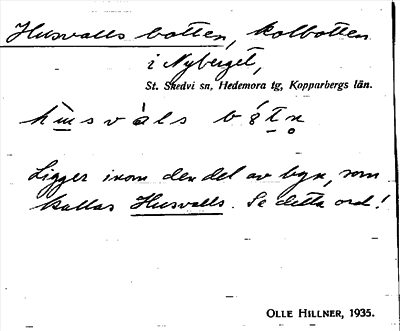 Husvalls botten, kolbotten
i Nyberget,
St. Skedvi sn, Hedemora tg, Kopparbergs län.
Ligger inom den del av byn, som
kallas Husvalls. Se detta ord!
OLLE HILLNER, 1935.